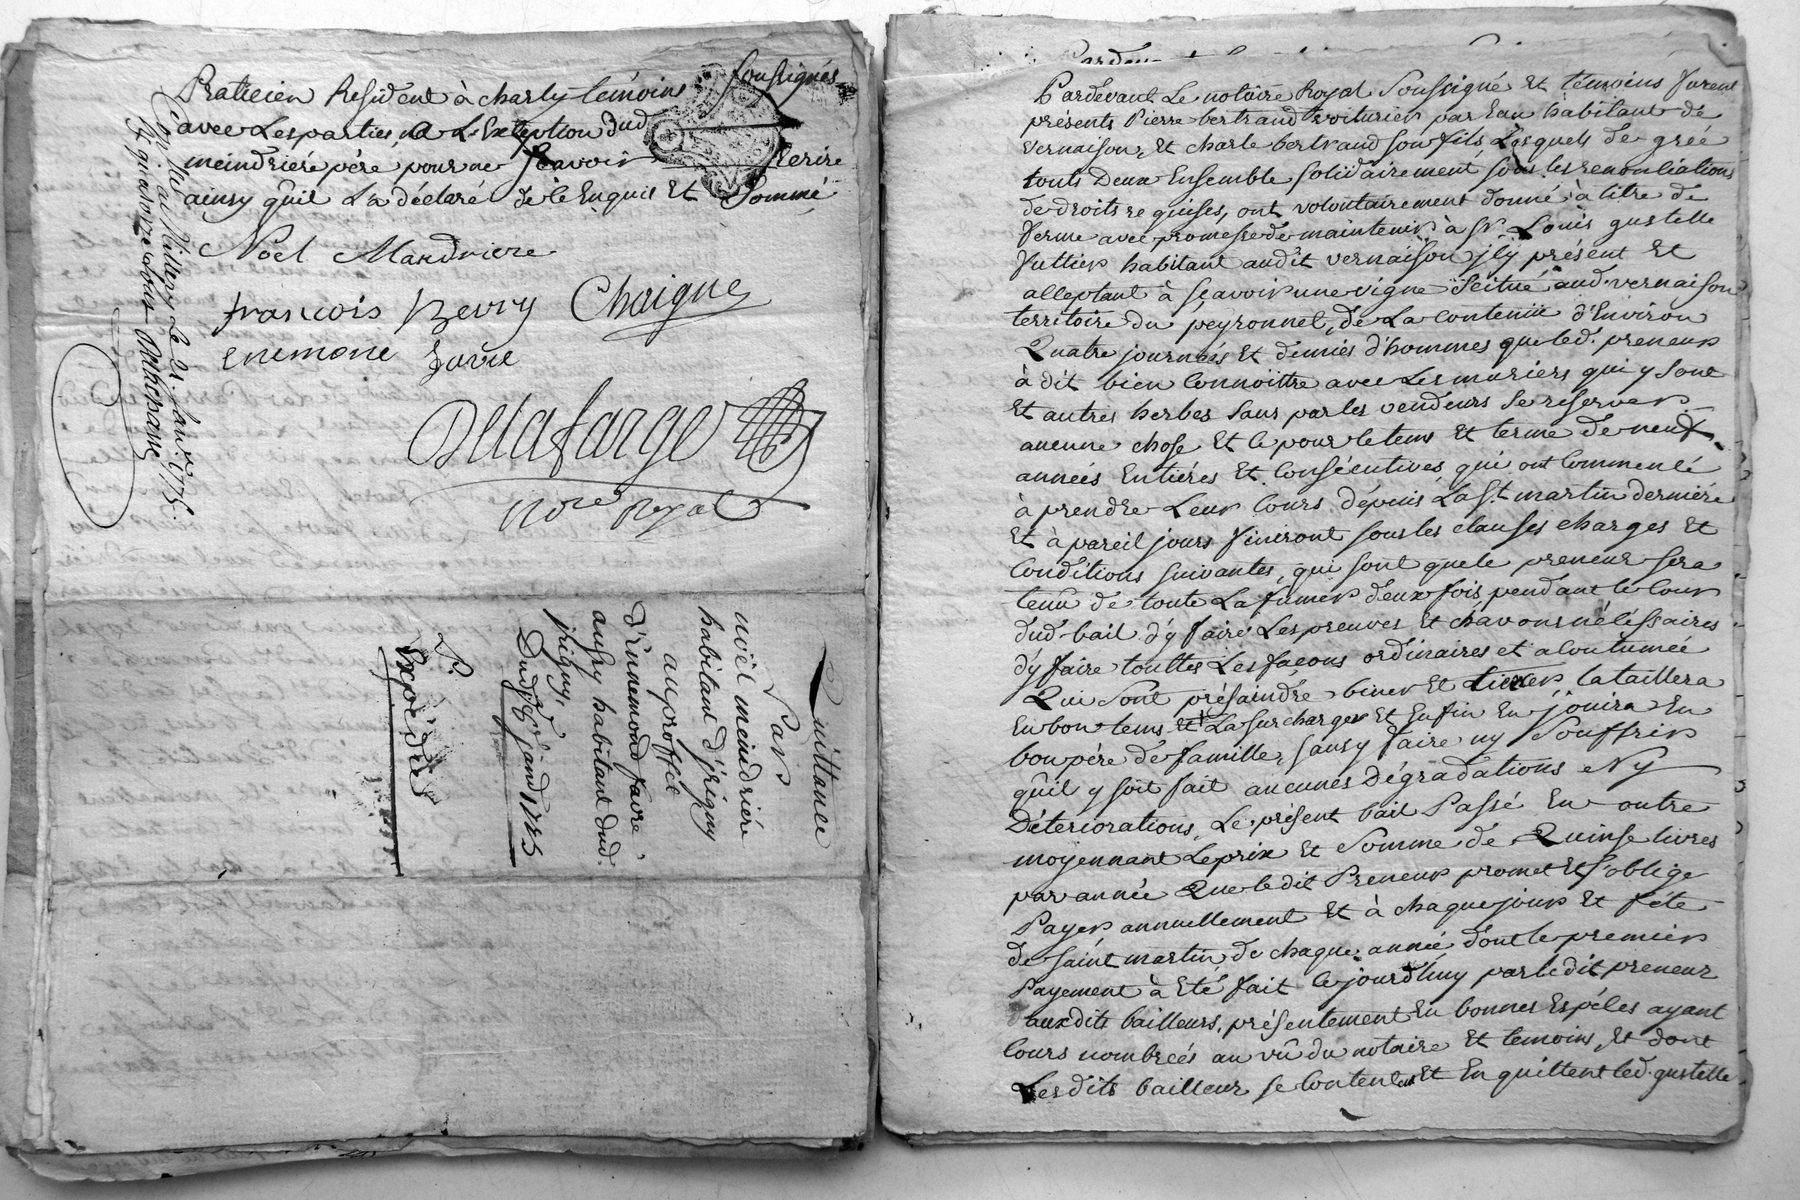 Praticien Résident à charly témoins soussignés
avec Les parties, à L'Exception dud
meindrieré père pour ne sçavoir Ecrire
ainsy qu'il L'a déclaré de ce Enquis Et Sommé
Noël Mandriere
françois Berry Chaigne
enemone favre
Delafarge
Nore Royal
Conllé à Millery Le 21. Janr. 1775.
Quittance
Par
noël meindrieré
habitant d'jrigny
au proffit
d'Ennemond favre
aussy habitant dud.
jrigny,
Du 8 janv 1775
Expédié
Pardevant Le notaire Royal Soussigné Et témoins furent
présents Pierre bertrand voiturier par Eau habitant de
vernaison, Et charle bertrand son fils Lesquels de gréé
touts Deux Ensemble solidairement sous les renonciations
de droits requises, ont volontairement donné à titre de
ferme avec promesse de maintenir à Sr. Louis gustelle
futtier habitant audit vernaison jcy présent Et
acceptant à sçavoir une vigne scitué aud. vernaison
territoire du peyronnet, de La contenüe d'Environ
Quatre journeés Et demiés d'hommes que led. preneur
à dit bien Connoittre avec Les muriers qui y sont
Et autres herbes sans par les vendeurs se réserver
aucune chose Et ce pour le tems Et terme de neuf
années Entiéres Et Consécutives qui ont Commencé
à prendre Leur Cours dépuis La St. martin derniére
Et à pareil jours finiront sous les clauses charges Et
Conditions suivantes, qui sont que le preneur sera
tenu de toute La fumer deux fois pendant le Cour
dud. bail d'y faire Les preuves Et chavons nécéssaires
d'y faire touttes Les façons ordinaires et acoutumée
Qui sont biner Et tierser la taillera
En bon tems Et La surcharger Et Enfin En jouira En
bon pére de famille, sans y faire ny Souffrir
qu'il y soit fait aucunes Dégradations Ny
Déteriorations, Le présent bail Passé En outre
moyennant Le prix Et Somme de Quinse livres
par année Que ledit Preneur promet Et s'oblige
Payer annuellement Et à chaque jour Et féte
de saint martin de chaque année, dont le premier
Payement à Eté fait ce jourd'huy par ledit preneur
auxdits bailleurs, présentement En bonnes Espéces ayant
Cours nombreés au vû du notaire Et temoins, Et dont
Lesdits bailleur se Contentent Et En quittent led. gustelle